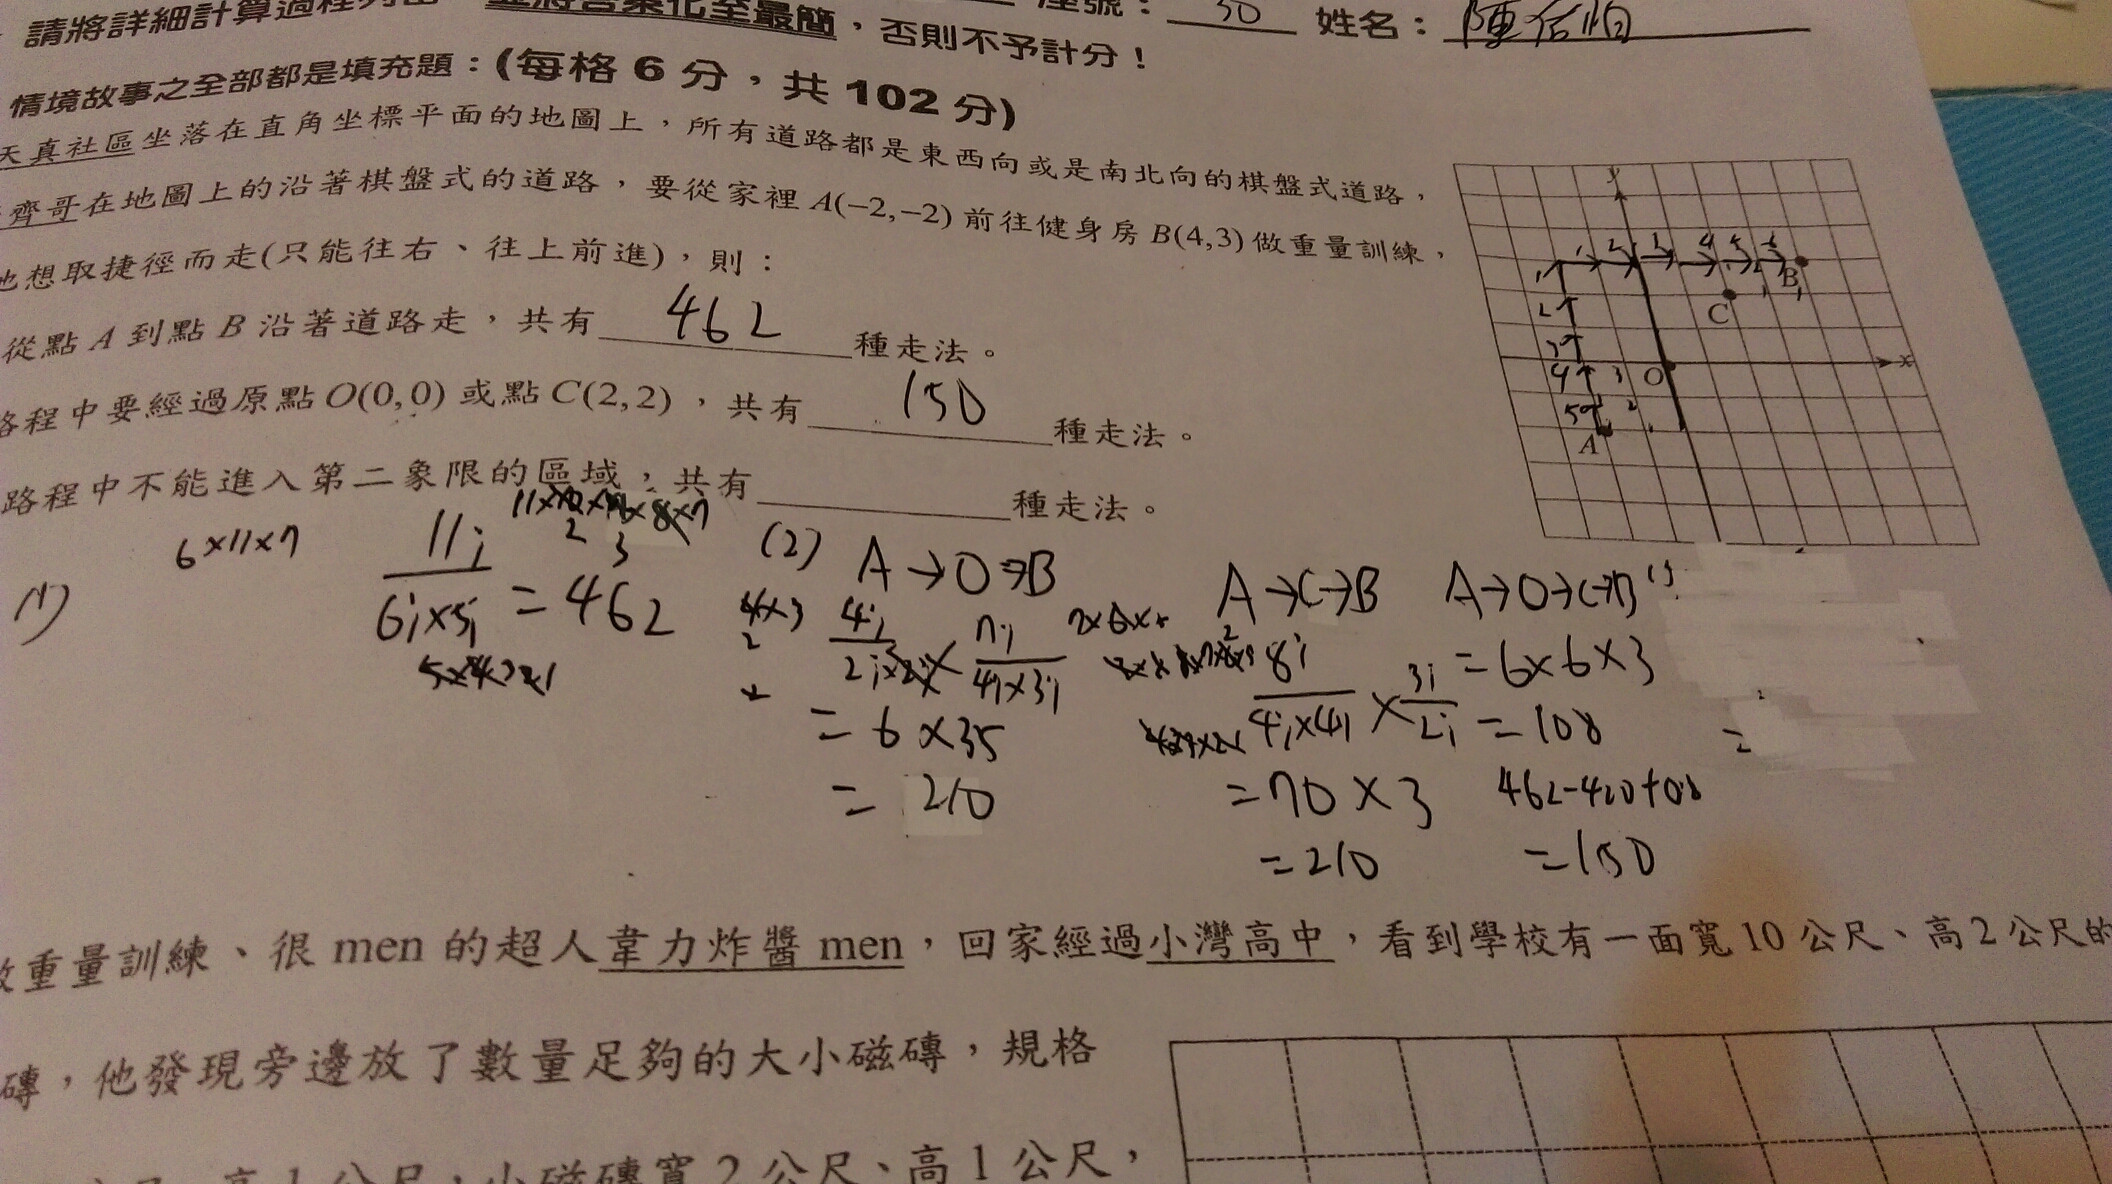 請將詳細計算過程列出，並將答案化至最簡，否則不予計分！ 座號：30 姓名：陳
情境故事之全部都是填充題：(每格 6 分，共 102 分)
天真社區坐落在直角坐標平面的地圖上，所有道路都是東西向或是南北向的棋盤式道路，
齊哥在地圖上的沿著棋盤式的道路，要從家裡 A(−2,−2) 前往健身房 B(4,3) 做重量訓練，
他想取捷徑而走(只能往右、往上前進)，則：
從點 A 到點 B 沿著道路走，共有 462 種走法。
路程中要經過原點 O(0,0) 或點 C(2,2)，共有 150 種走法。
路程中不能進入第二象限的區域，共有 種走法。
y
1 2 3 4 5 6
B
C
x
O
A
6×11×7
(1) 11!/(6!×5!) = 462
(2) A→O→B
4!/(2!×2!) × 7!/(4!×3!)
= 6×35
= 210
A→C→B
8!/(4!×4!) × 3!/2!
= 70×3
= 210
A→O→C→B
= 6×6×3
= 108
462-420+108
= 150
做重量訓練、很 men 的超人韋力炸醬 men，回家經過小灣高中，看到學校有一面寬 10 公尺、高 2 公尺的
磚，他發現旁邊放了數量足夠的大小磁磚，規格
高 1 公尺，小磁磚寬 2 公尺、高 1 公尺，